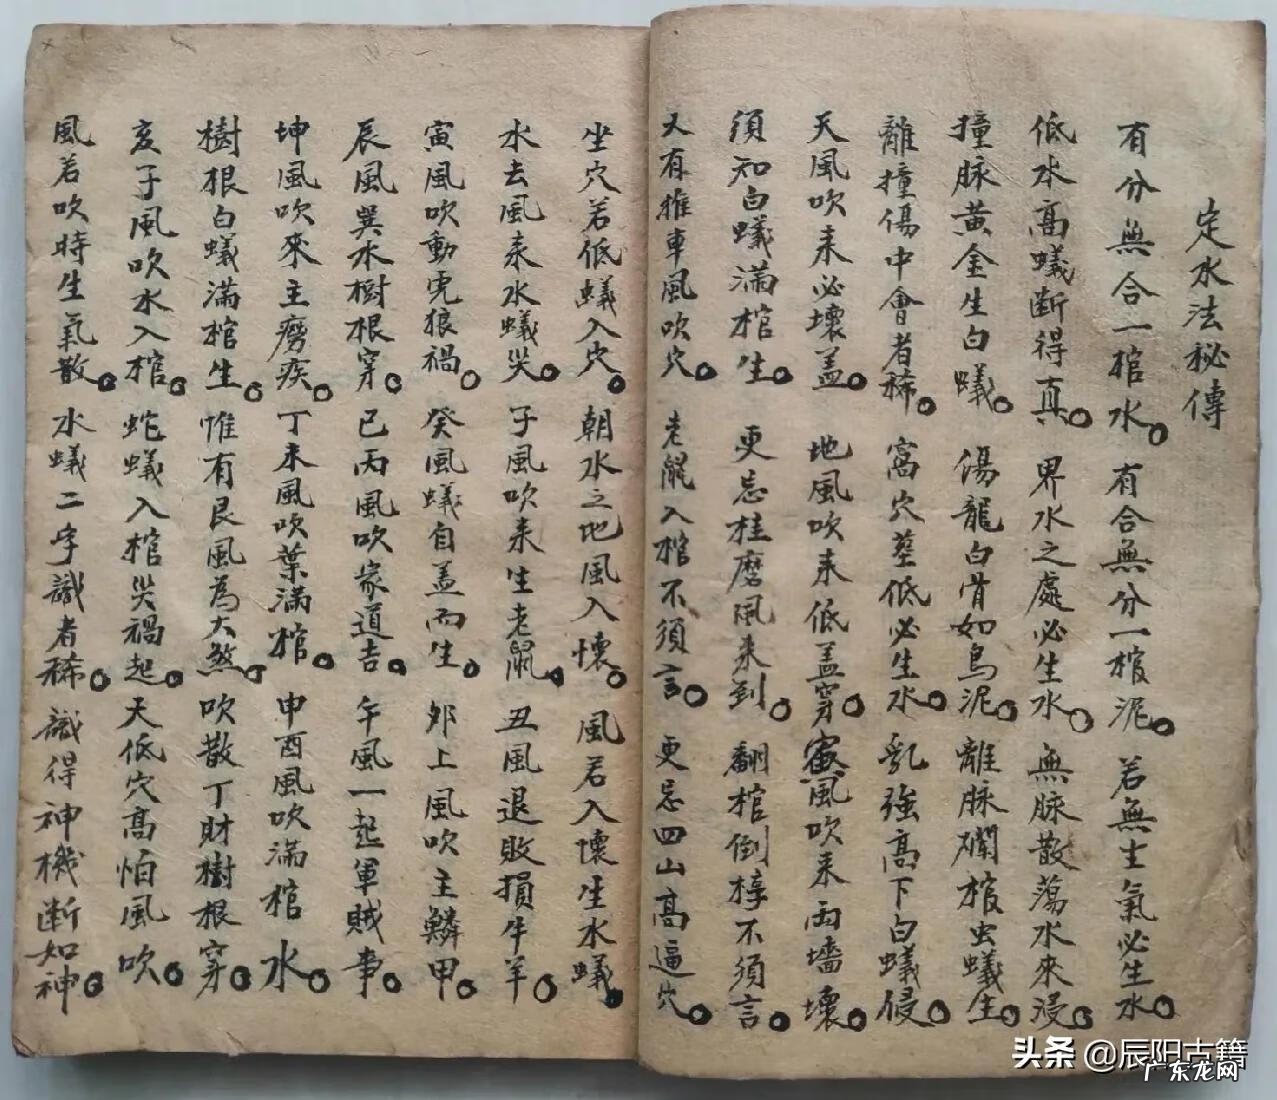 定水法秘傳
有分無合一棺水。有合無分一棺泥。若無生氣必生水。
低水高蟻断得真。界水之處必生水。無脉散蕩水來浸。
撞脉黄金生白蟻。傷龍白骨如烏泥。離脉斕棺虫蟻生。
離撞傷中會者稀。窩穴塟低必生水。乳強高下白蟻侵。
天風吹来必壞盖。地風吹来低盖穿。風吹来両墻壞。
須知白蟻滿棺生。更忌桂磨風来到。翻棺倒槨不須言。
又有推車風吹穴。老鼠入棺不須言。更忌四山高逼穴。
坐穴若低蟻入穴。朝水之地風入懐。風若入懐生水蟻。
水去風来水蟻災。子風吹来生老鼠。丑風退敗損牛羊。
寅風吹動虎狼禍。癸風蟻自盖而生。卯上風吹主鱗甲。
辰風巽水樹根穿。巳丙風吹家道吉。午風一起軍賊事。
坤風吹來主癆疾。丁未風吹葉滿棺。申酉風吹滿棺水。
樹根白蟻滿棺生。惟有艮風為大煞。吹散丁財樹根穿。
亥子風吹水入棺。蛇蟻入棺災禍起。天低穴高怕風吹。
風若吹時生氣散。水蟻二字識者稀。識得神機断如神。
头条 @辰阳古籍
广东龙网